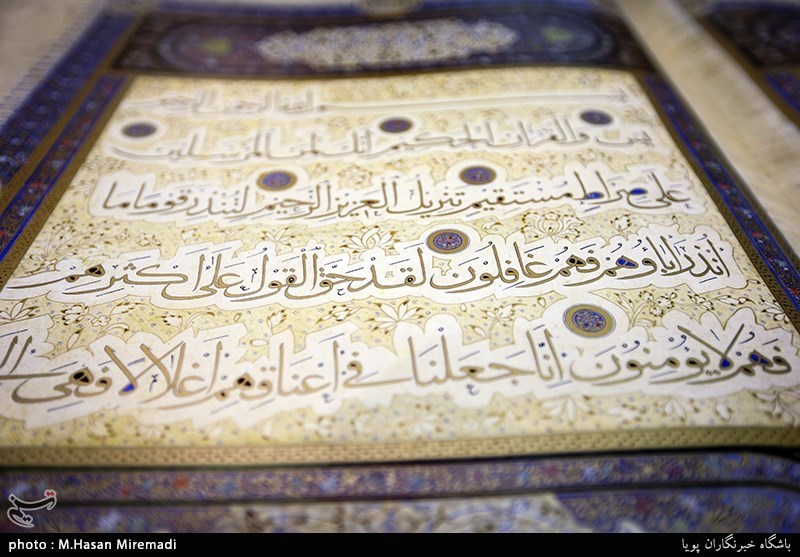 بسم الله الرحمن الرحيم
يس والقرآن الحكيم انك لمن المرسلين
على صراط مستقيم تنزيل العزيز الرحيم لتنذر قوما ما
أنذر اباؤهم فهم غافلون لقد حق القول على اكثرهم
فهم لا يؤمنون انا جعلنا في اعناقهم اغلالا فهي
تسنیم
photo : M.Hasan Miremadi
باشگاه خبرنگاران پویا